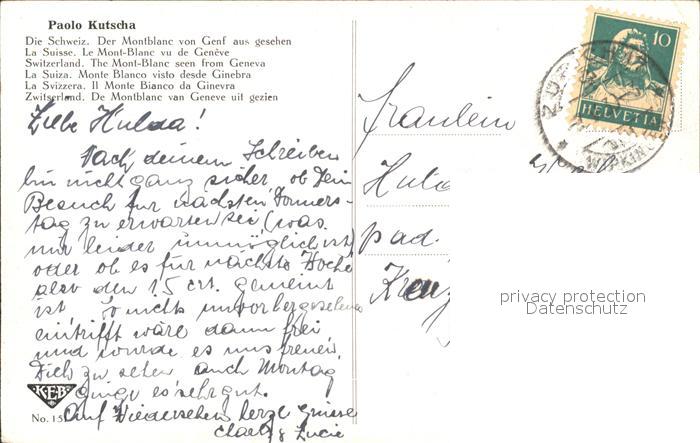 Paolo Kutscha
Die Schweiz. Der Montblanc von Genf aus gesehen
La Suisse. Le Mont-Blanc vu de Genêve
Switzerland. The Mont-Blanc seen from Geneva
La Suiza. Monte Blanco visto desde Ginebra
La Svizzera. Il Monte Bianco da Ginevra
Zwitserland. De Montblanc van Geneve uit gezien
Liebe Hulda!
Nach deinem Schreiben
bin nicht ganz sicher, ob Dein
Besuch für nächsten Donners-
tag zu erwarten sei, (was
mir leider unmöglich ist)
oder ob es für nächste Woche
also den 15 crt. gemeint
ist. So nichts unvorhergesehenes
eintrifft wäre dann frei
und würde es uns freuen,
Dich zu sehen auch Montag
ginge es sehr gut.
Auf Wiedersehen herzl Grüsse
Lucie
KEB
No. 15
Fräulein
Hul
pad.
Kreuz
10
HELVETIA
privacy protection
Datenschutz